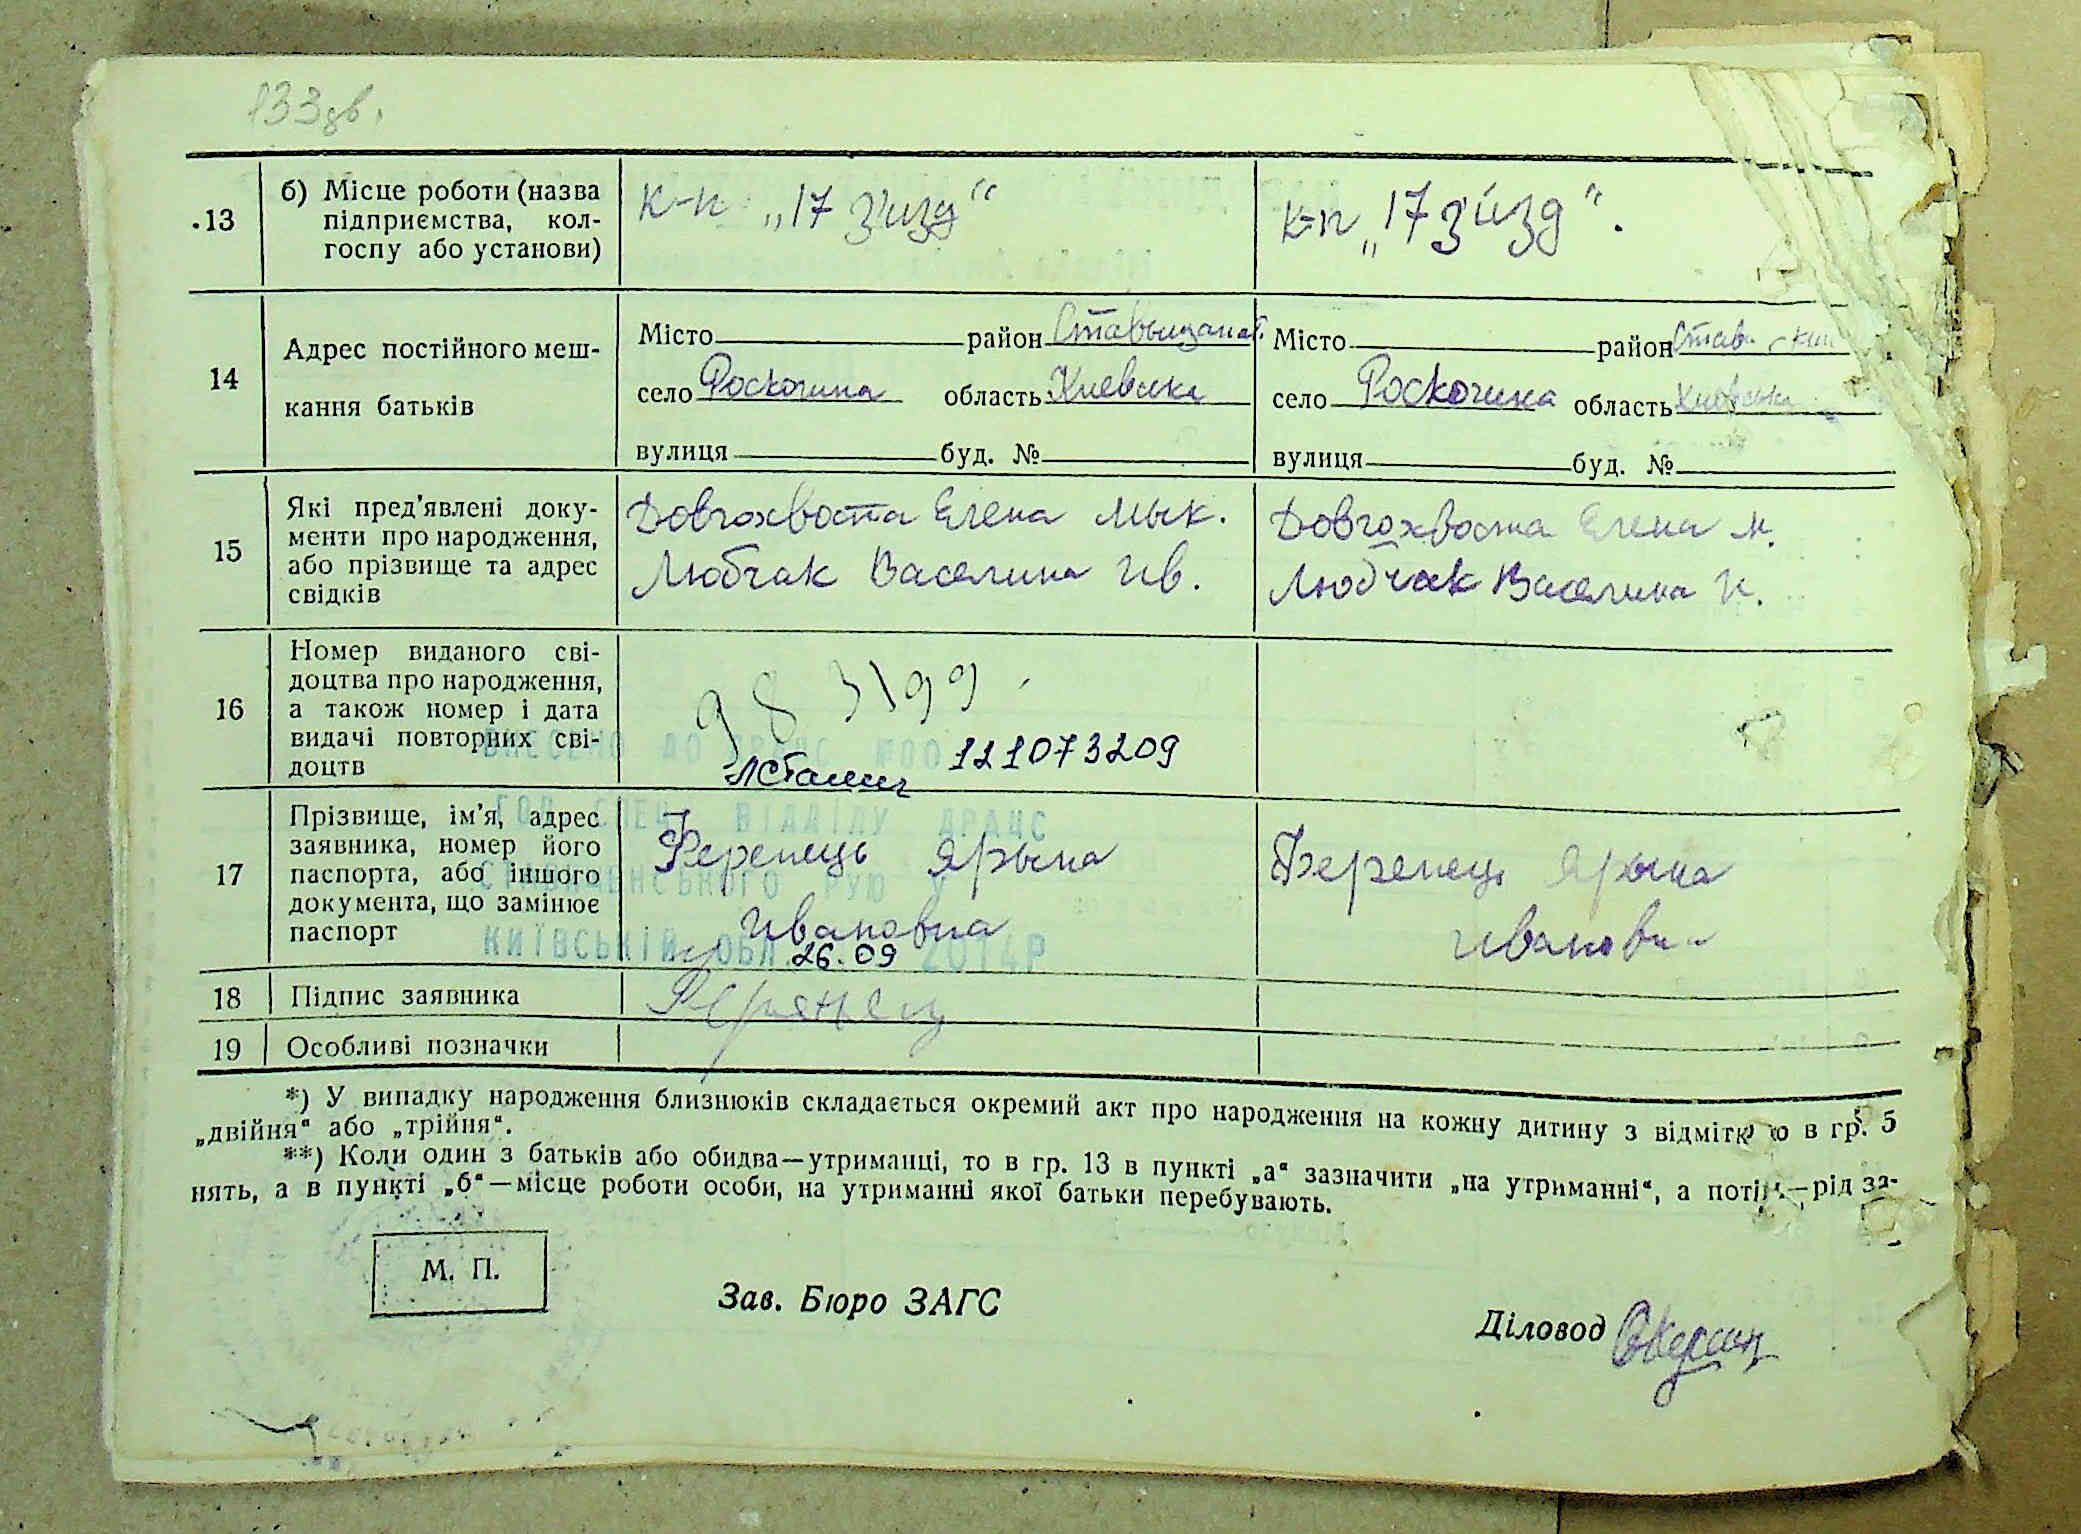 133зв.
13
б) Місце роботи (назва
підприємства, кол-
госпу або установи)
к-п „17 з'изд“
к-п „17 з'изд“.
14
Адрес постійного меш-
кання батьків
Місто район
село Роскочина область Киевска
вулиця буд. №
Місто район
село Роскочина область
вулиця буд. №
15
Які пред'явлені доку-
менти про народження,
або прізвище та адрес
свідків
Довгохвоста Елена Мык.
Любчак Васелина Ив.
Довгохвоста Елена М.
Любчак Васелина И.
16
Номер виданого сві-
доцтва про народження,
а також номер і дата
видачі повторних сві-
доцтв
983199
121073209
ВНЕСЕНО ДО ДРАЦС
17
Прізвище, ім'я, адрес
заявника, номер його
паспорта, або іншого
документа, що замінює
паспорт
ГОЛ СПЕЦ ВІДДІЛУ ДРАЦС
СТАВИЩЕНСЬКОГО РУЮ У
КИЇВСЬКІЙ ОБЛ. 26.09 2014Р
Ференець Ярына
Ивановна
Ференець Ярына
18
Підпис заявника
19
Особливі позначки
*) У випадку народження близнюків складається окремий акт про народження на кожну дитину з відміткою в гр. 5
„двійня“ або „трійня“.
**) Коли один з батьків або обидва—утриманці, то в гр. 13 в пункті „а“ зазначити „на утриманні“, а потім—рід за-
нять, а в пункті „б“—місце роботи особи, на утриманні якої батьки перебувають.
М. П.
Зав. Бюро ЗАГС
Діловод